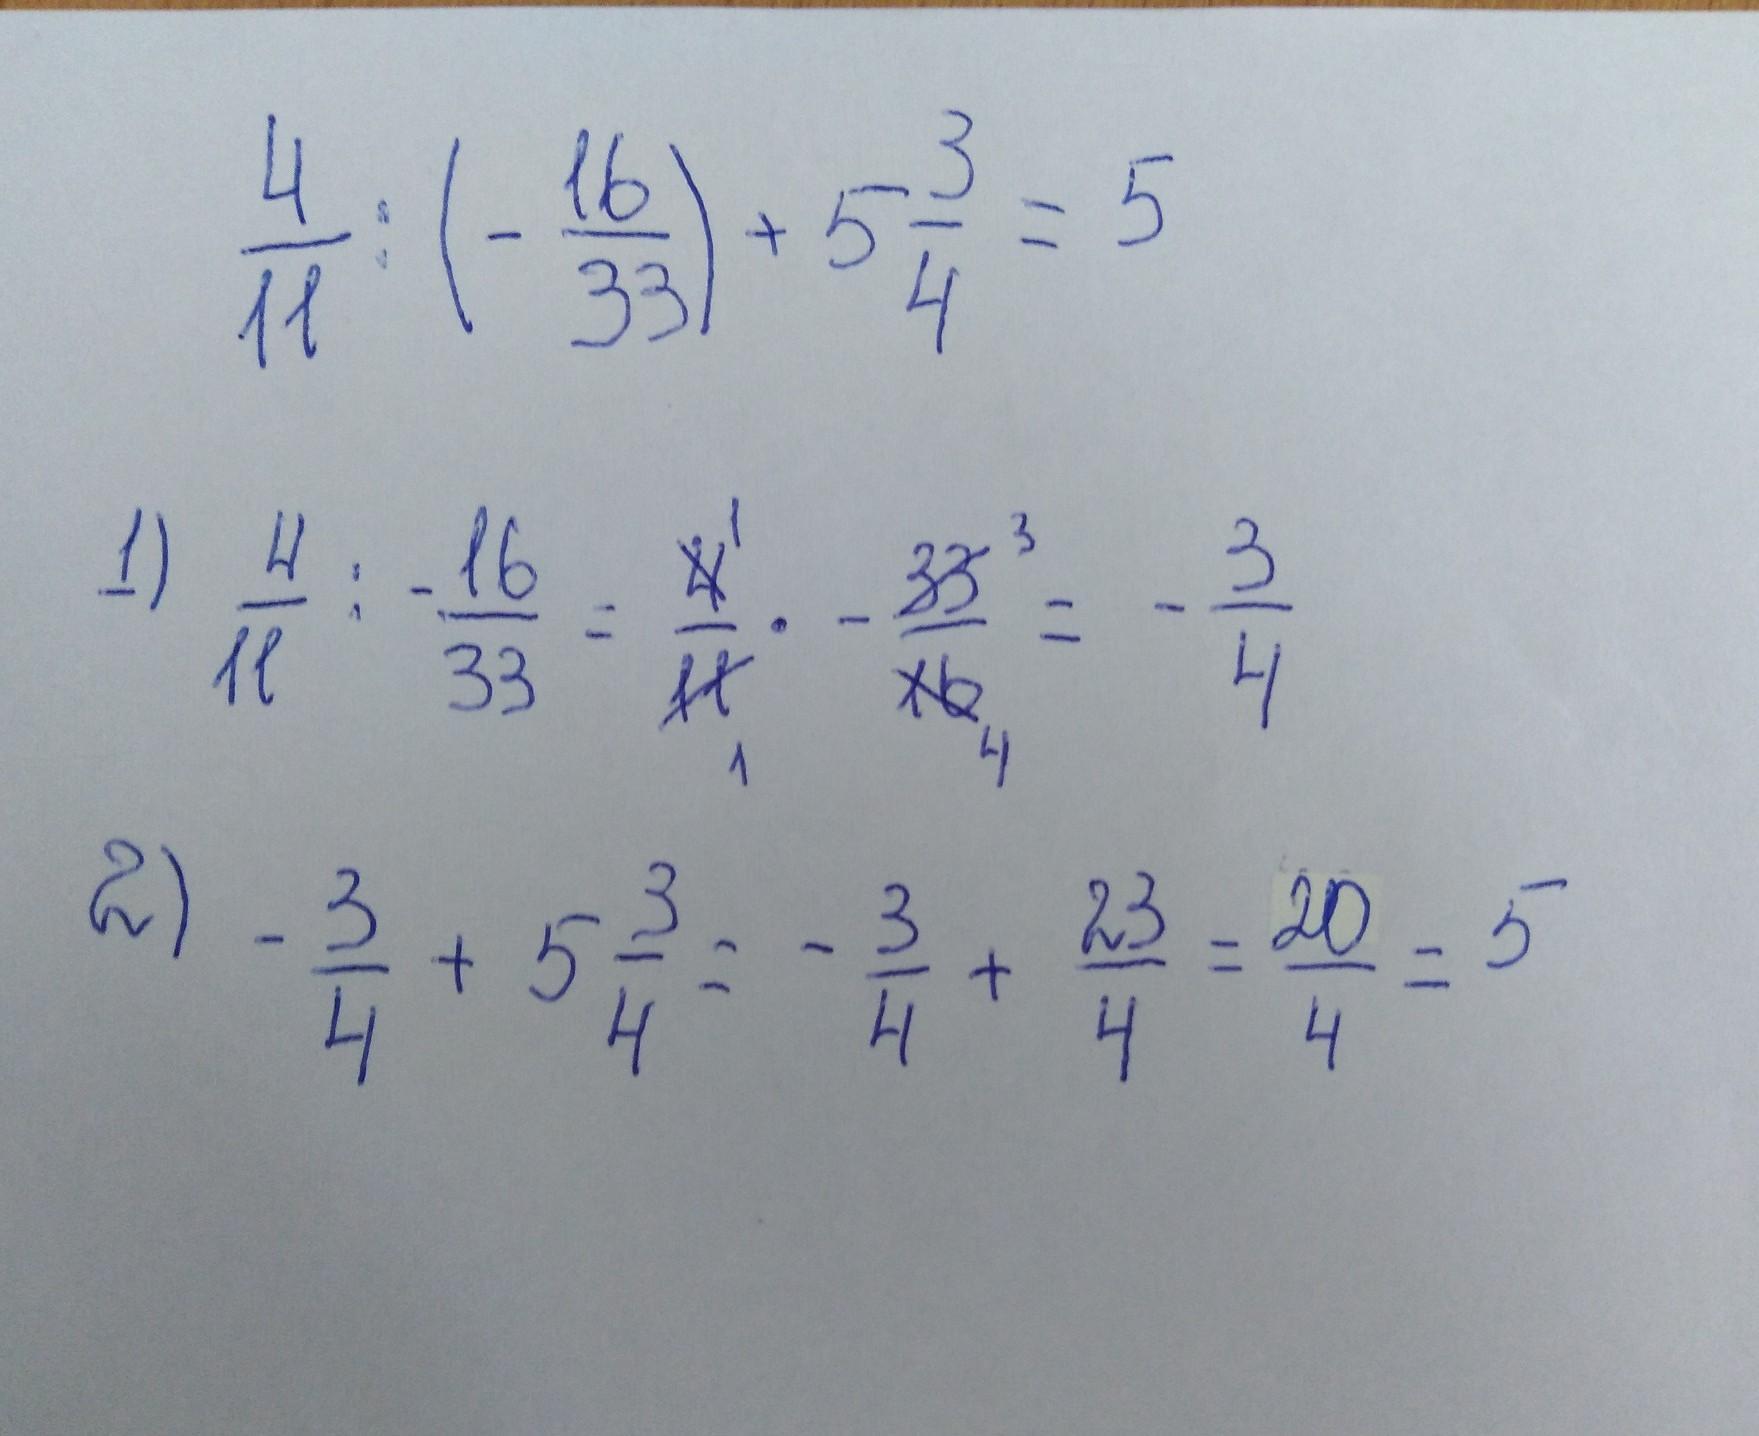 4/11 : (- 16/33) + 5 3/4 = 5
1) 4/11 : - 16/33 = 4 1/11 1 · - 33 3/16 4 = - 3/4
2) - 3/4 + 5 3/4 = - 3/4 + 23/4 = 20/4 = 5